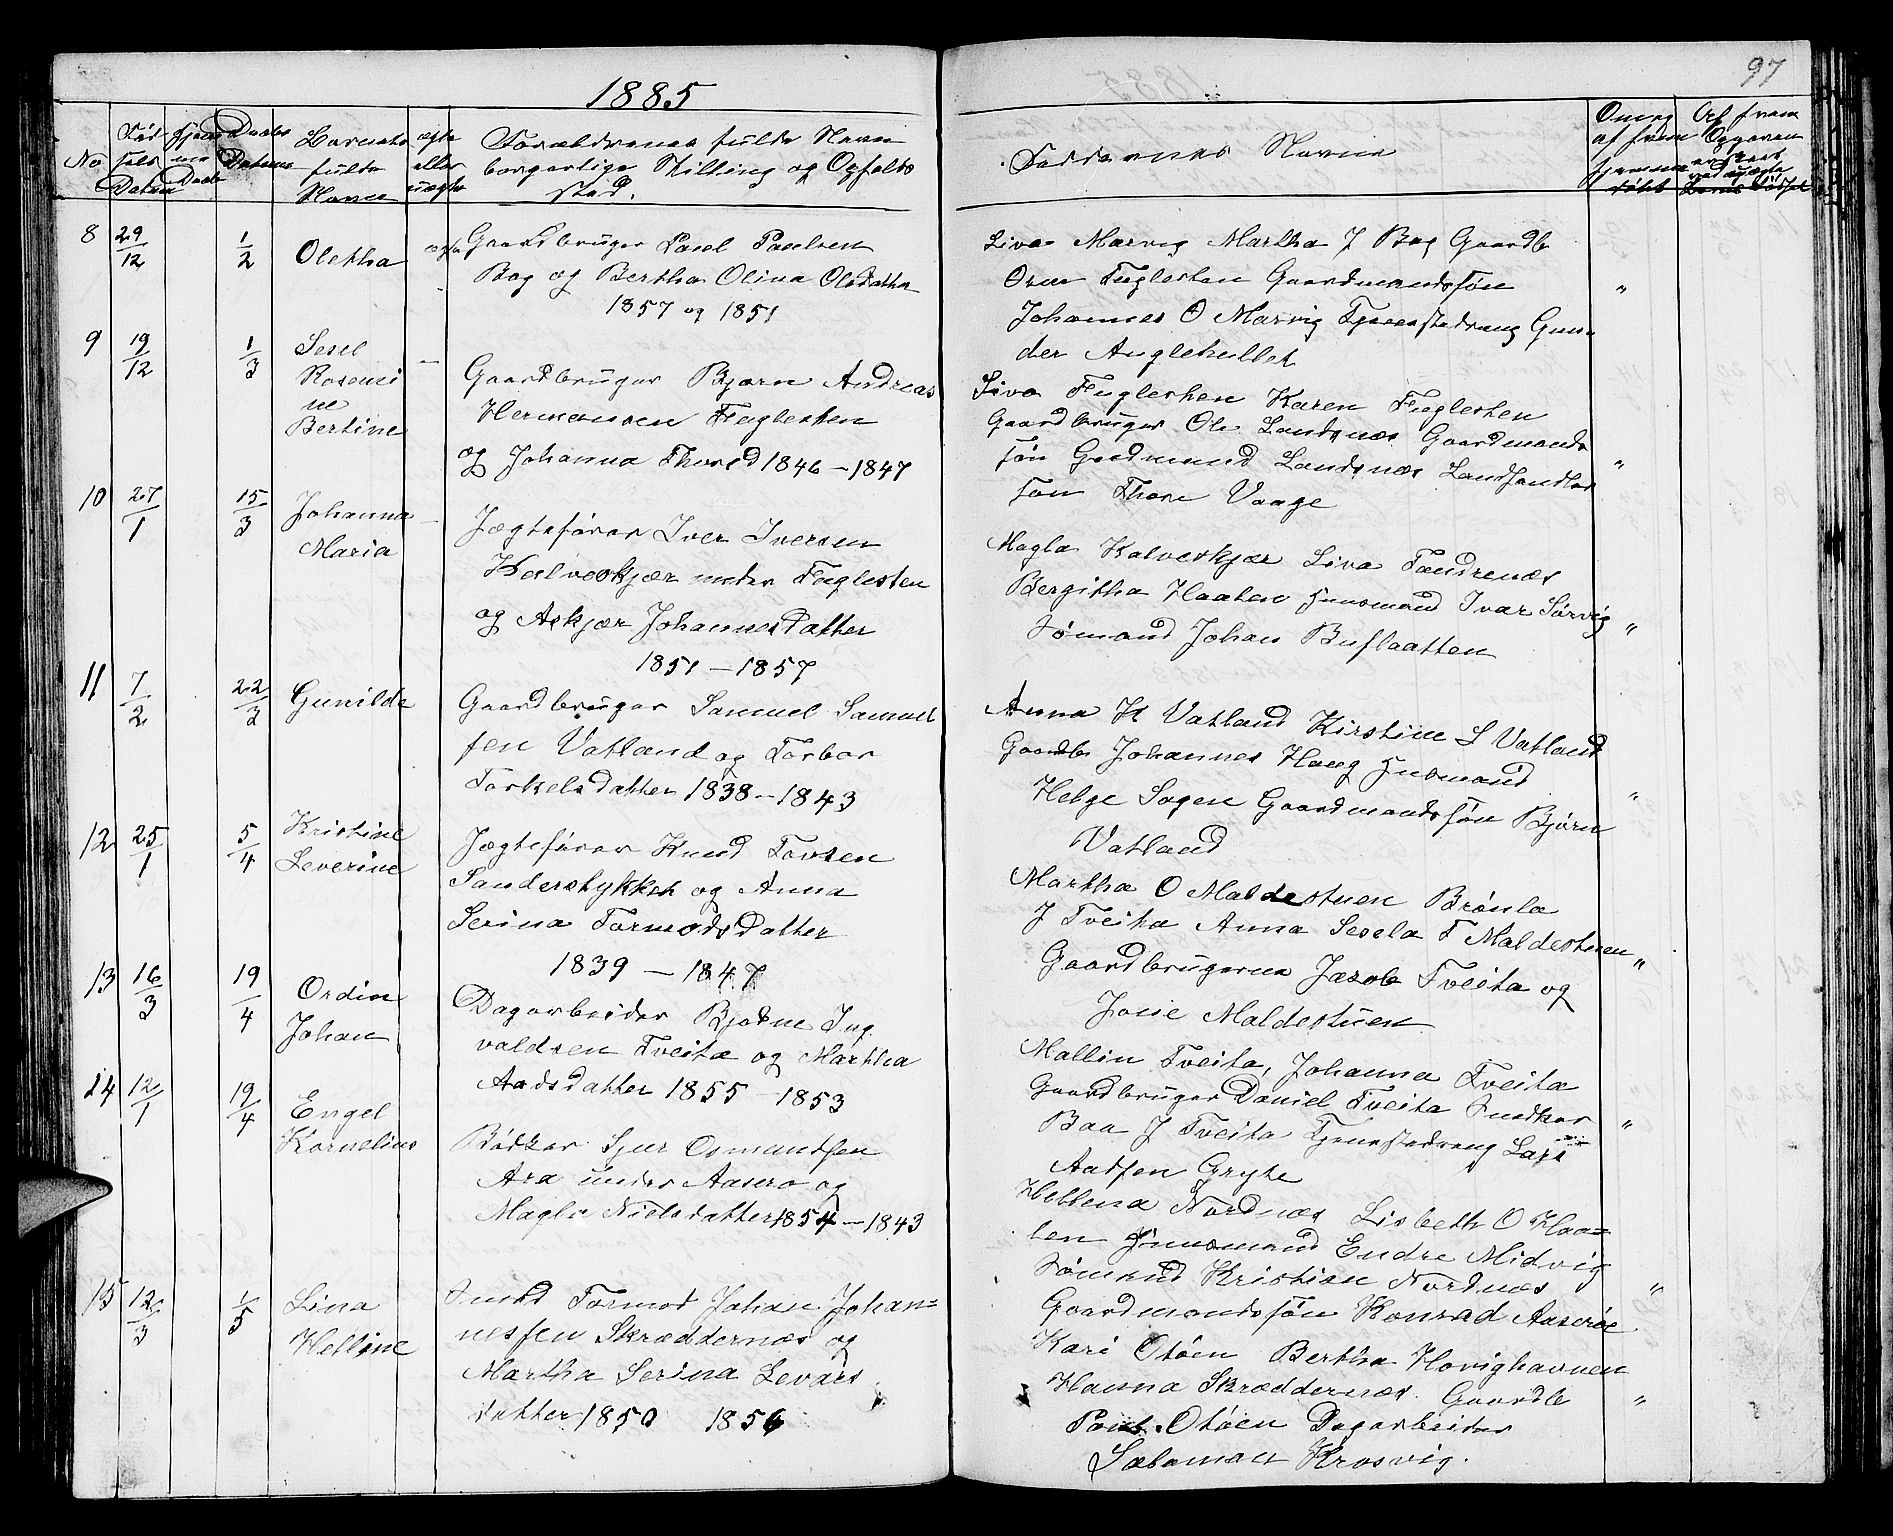 1885
97
No
Fødsels Datum
Hjemme Daab
Daabs Datum
Barnets fulde Navn
ægte eller uægte
Forældrenes fulde Navn
borgerlige Stilling og Opholds
sted.
Faddernes Navne
8 29/12 1/2 Oletha ægte
Gaardbruger Poul Poulsen
Bog og Bertha Olina Olsdatter
1857 og 1851
Liva Marvig Martha J Bog Gaardb
Orm Fuglesten Gaardmandssøn "
Johannes O Marvig Tjenestedreng Gun-
der
9 19/12 1/3 Sesel
Rosemi
ne
Bertine
Gaardbruger Bjørn Andreas
Hermansen Fuglesten
og Johanna Thorsd 1846 – 1847
Liva Fuglesten Karen Fuglesten
Gaardbruger Ole Landsnæs Gaardmands
søn Gudmund Landsnæs Landhandler "
søn Thore Vaage
10 27/1 15/3 Johanna –
Maria
Jægtefører Iver Iversen
Kalveskjær under Fuglesten
og Askjær Johannesdatter
1851 – 1857
Magla Kalveskjær Liva Sandrenæs
Bergitha Haaten Huusmand Ivar Sørvig "
Sømand Johan Buflaatten
11 7/2 22/3 Gunilde
Gaardbruger Samuel Samuel
sen Vatland og Torbor
Torkelsdatter 1838 – 1843
Anna H Vatland Kirstine S Vatland
Gaardb Johannes Haug Husmand
Helge Sagen Gaardmandssøn Bjørn "
Vatland
12 25/1 5/4 Kristine
Severine
Jægtefører Knud Torsen
Sanderstykket og Anna
Serina Tormodsdatter
1839 – 1847
Martha O Maldestuen Brønla
J Tveita Anna Sesela T Maldestuen "
Gaardbrugerne Jacob Tveita og
Jone Maldestuen
13 16/3 19/4 Ordin
Johan
Dagarbeider Bjørne Ing
valdsen Tveita og Martha
Aadsdatter 1855 – 1853
Mallin Tveita, Johanna Tveita
Gaardbruger Daniel Tveita Snedker
Baa J Tveita Tjenestedreng Lars "
Aadsen Gryte
14 12/1 19/4 Engel
Kornelius
Bødker Sjur Osmundsen
Ara under Aasero og
Magla Nielsdatter 1854 – 1843
Hellena Nordnæs Lisbeth O Haa=
ten Huusmand Endre Midvig
Sømand Kristian Nordnæs "
Gaardmandssøn Konrad Aaserøe
15 12/3 1/5 Lina
Helline
Smed Tormod Johan Johan=
nessen Skræddernæs og
Martha Serina Sevars
datter 1850 1856
Kari Otøen Bertha Hovighavnen
Hanna Skræddernæs Gaardb "
Poul Otøen Dagarbeider
Salomon Krosvig.